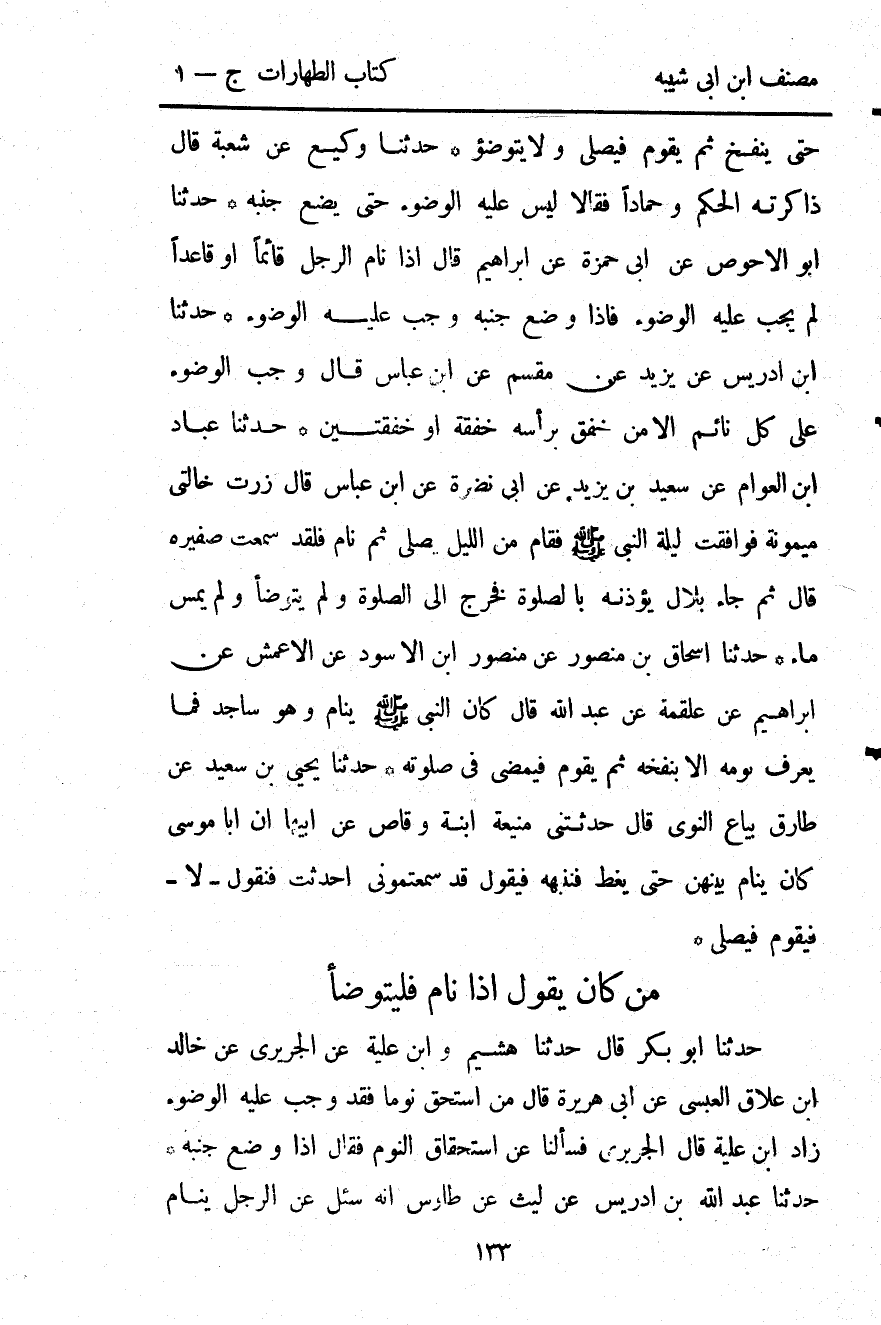 مصنف ابن ابى شيبه كتاب الطهارات ج — ١
حتى ينفخ ثم يقوم فيصلى و لايتوضؤ * حدثنا وكيع عن شعبة قال
ذاكرته الحكم و حماداً فقالا ليس عليه الوضوء حتى يضع جنبه * حدثنا
ابو الاحوص عن ابى حمزة عن ابراهيم قال اذا نام الرجل قائماً او قاعداً
لم يجب عليه الوضوء فاذا وضع جنبه وجب عليه الوضوء * حدثنا
ابن ادريس عن يزيد عن مقسم عن ابن عباس قال وجب الوضوء
على كل نائم الا من خفق برأسه خفقة او خفقتين * حدثنا عباد
ابن العوام عن سعيد بن يزيد عن ابى نضرة عن ابن عباس قال زرت خالتى
ميمونة فوافقت ليلة النبى ﷺ فقام من الليل يصلى ثم نام فلقد سمعت صفيره
قال ثم جاء بلال يؤذنه بالصلوة فخرج الى الصلوة و لم يتوضأ و لم يمس
ماء * حدثنا اسحاق بن منصور عن منصور ابن الاسود عن الاعمش عن
ابراهيم عن علقمة عن عبد الله قال كان النبى ﷺ ينام و هو ساجد فما
يعرف نومه الا بنفخه ثم يقوم فيمضى فى صلوته * حدثنا يحيى بن سعيد عن
طارق بياع النوى قال حدثتنى منيعة ابنة وقاص عن ابيها ان ابا موسى
كان ينام بينهن حتى يغط فننبهه فيقول قد سمعتمونى احدثت فنقول ـ لا ـ
فيقوم فيصلى *
من كان يقول اذا نام فليتوضأ
حدثنا ابو بكر قال حدثنا هشيم و ابن علية عن الجريرى عن خالد
ابن علاق العبسى عن ابى هريرة قال من استحق نوما فقد وجب عليه الوضوء
زاد ابن علية قال الجريرى فسألنا عن استحقاق النوم فقال اذا وضع جنبه *
حدثنا عبد الله بن ادريس عن ليث عن طاوس انه سئل عن الرجل ينام
١٣٣